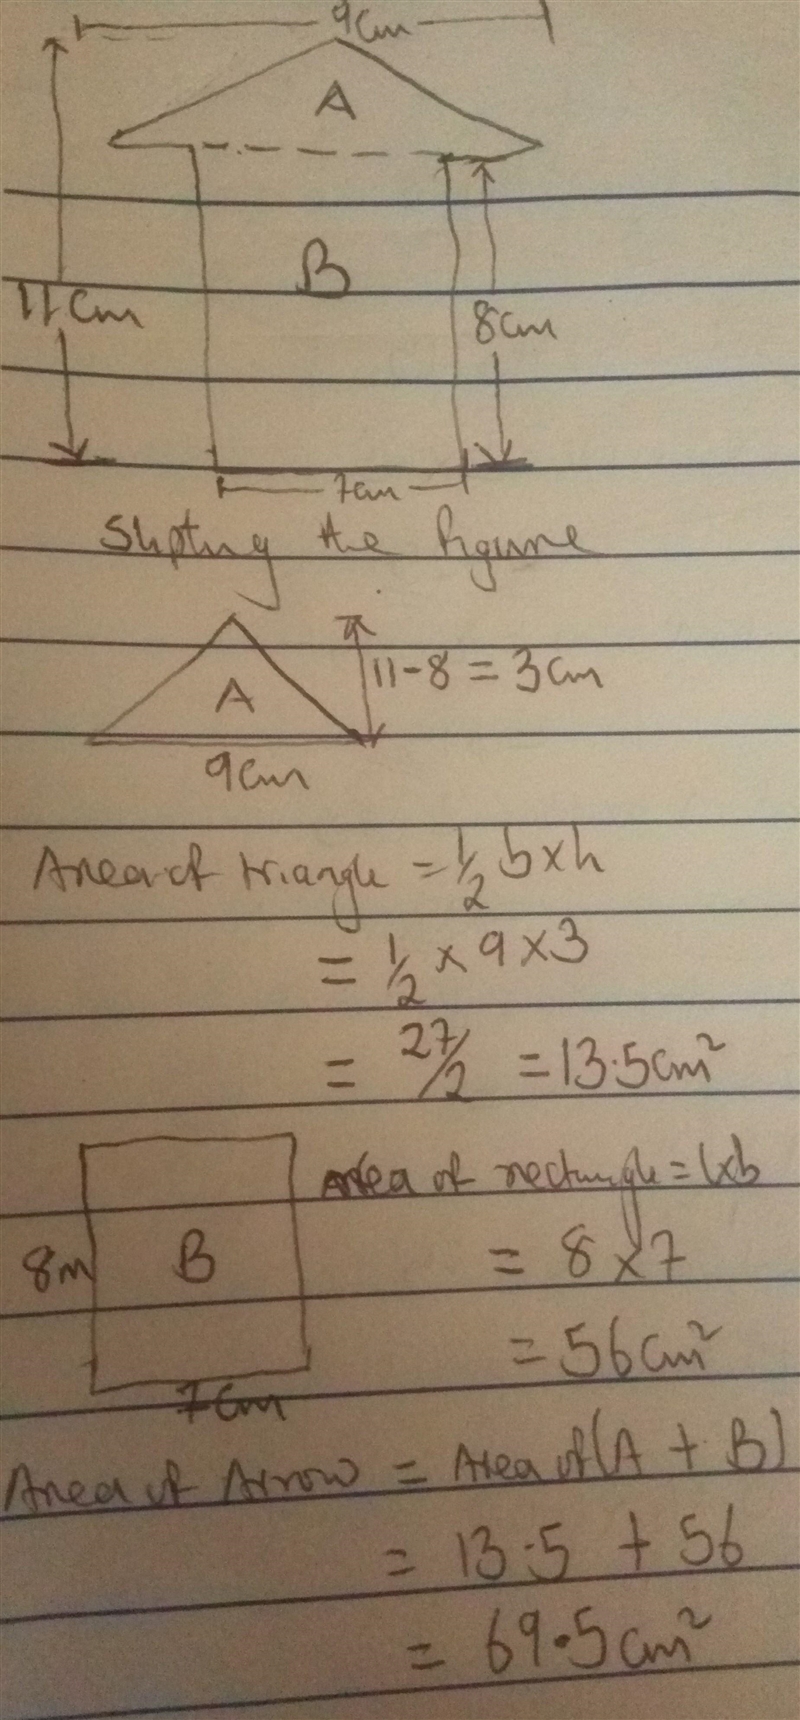 9cm
A
B
11cm
8cm
7cm
Splitting the figure
A
11-8 = 3cm
9cm
Area of triangle = 1/2 b×h
= 1/2 × 9 × 3
= 27/2 = 13.5cm²
Area of rectangle = l×b
8m B = 8 × 7
= 56cm²
7cm
Area of Arrow = Area of (A + B)
= 13.5 + 56
= 69.5cm²